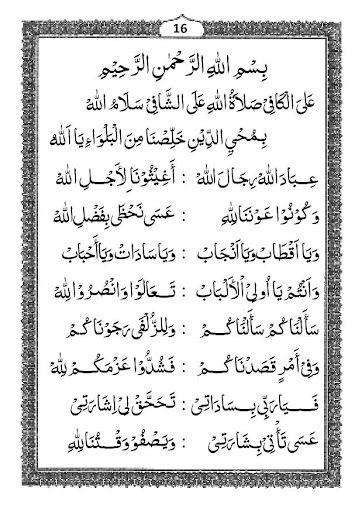 16
بِسْمِ اللهِ الرَّحْمٰنِ الرَّحِيْمِ
عَلَى الْكَافِيْ صَلَاةُ اللهِ عَلَى الشَّافِيْ سَلَامُ اللهْ
بِمُحْيِ الدِّيْنِ خَلِّصْنَا مِنَ الْبَلْوَاءِ يَا اَللهْ
عِبَادَ اللهْ رِجَالَ اللهْ : أَغِيْثُوْنَا لِأَجْلِ اللهْ
وَكُوْنُوْا عَوْنَنَا لِلّٰهِ : عَسَى نَحْظَى بِفَضْلِ اللهْ
وَيَا أَقْطَابْ وَيَا أَنْجَابْ : وَيَا سَادَاتْ وَيَا أَحْبَابْ
وَأَنْتُمْ يَا أُولِى الْأَلْبَابْ : تَعَالَوْا وَانْصُرُوْا لِلّٰهِ
سَأَلْنَاكُمْ سَأَلْنَاكُمْ : وَلِلزُّلْفَى رَجَوْنَاكُمْ
وَفِيْ أَمْرٍ قَصَدْنَاكُمْ : فَشُدُّوْا عَزْمَكُمْ لِلّٰهِ
فَيَارَبِّيْ بِسَادَاتِيْ : تَحَقَّقْ لِيْ إِشَارَتِيْ
عَسَى تَأْتِيْ بِشَارَتِيْ : وَيَصْفُوْ وَقْتُنَا لِلّٰهِ